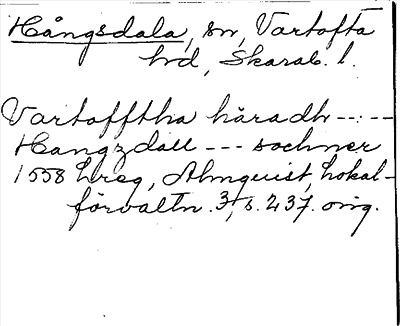 Hångsdala, sn, Vartofta
hd, Skarab. l.
Vartofftha häradh --:--
Hangzdall --- sochner
1558 hreg, Almquist, Lokal-
förvaltn. 3, s. 237. orig.